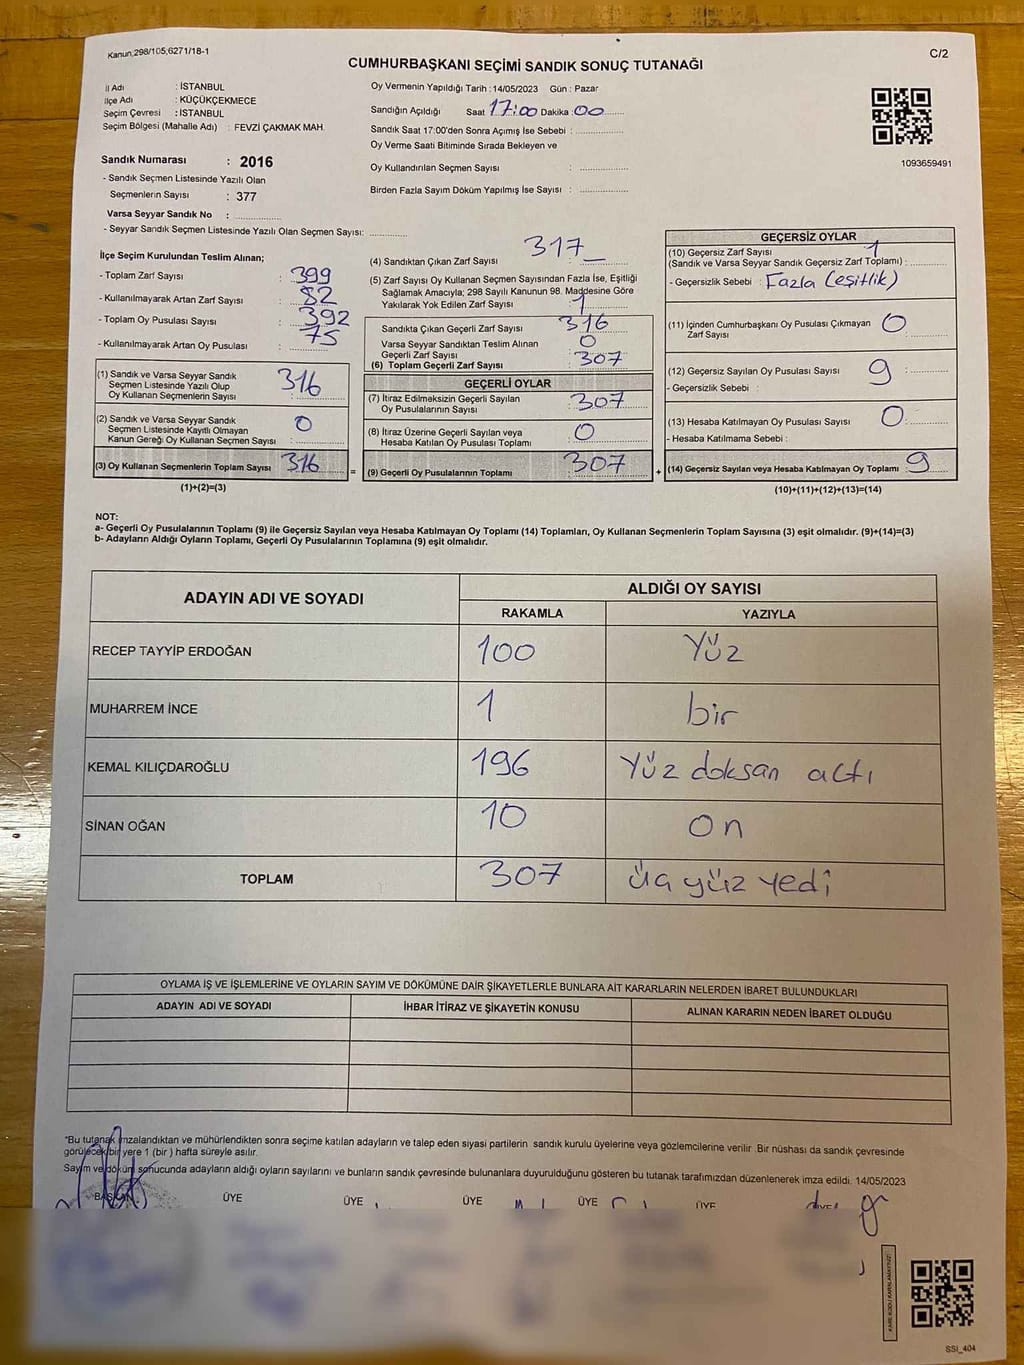 Kanun,298/105,6271/18-1
C/2
CUMHURBAŞKANI SEÇİMİ SANDIK SONUÇ TUTANAĞI
İl Adı : İSTANBUL
İlçe Adı : KÜÇÜKÇEKMECE
Seçim Çevresi : İSTANBUL
Seçim Bölgesi (Mahalle Adı) : FEVZİ ÇAKMAK MAH.
Oy Vermenin Yapıldığı Tarih : 14/05/2023 Gün : Pazar
Sandığın Açıldığı Saat 17:00 Dakika :00
Sandık Saat 17:00'den Sonra Açımış İse Sebebi :
Oy Verme Saati Bitiminde Sırada Bekleyen ve
Oy Kullandırılan Seçmen Sayısı :
Birden Fazla Sayım Döküm Yapılmış İse Sayısı :
1093659491
Sandık Numarası : 2016
- Sandık Seçmen Listesinde Yazılı Olan
Seçmenlerin Sayısı : 377
Varsa Seyyar Sandık No :
- Seyyar Sandık Seçmen Listesinde Yazılı Olan Seçmen Sayısı:
İlçe Seçim Kurulundan Teslim Alınan;
- Toplam Zarf Sayısı : 399
- Kullanılmayarak Artan Zarf Sayısı : 82
- Toplam Oy Pusulası Sayısı : 392
- Kullanılmayarak Artan Oy Pusulası : 75
(1) Sandık ve Varsa Seyyar Sandık
Seçmen Listesinde Yazılı Olup
Oy Kullanan Seçmenlerin Sayısı : 316
(2) Sandık ve Varsa Seyyar Sandık
Seçmen Listesinde Kayıtlı Olmayan
Kanun Gereği Oy Kullanan Seçmen Sayısı : 0
(3) Oy Kullanan Seçmenlerin Toplam Sayısı : 316
(1)+(2)=(3)
(4) Sandıktan Çıkan Zarf Sayısı : 317
(5) Zarf Sayısı Oy Kullanan Seçmen Sayısından Fazla İse, Eşitliği
Sağlamak Amacıyla; 298 Sayılı Kanunun 98. Maddesine Göre
Yakılarak Yok Edilen Zarf Sayısı : 1
Sandıkta Çıkan Geçerli Zarf Sayısı : 316
Varsa Seyyar Sandıktan Teslim Alınan
Geçerli Zarf Sayısı : 0
(6) Toplam Geçerli Zarf Sayısı : 307
GEÇERLİ OYLAR
(7) İtiraz Edilmeksizin Geçerli Sayılan
Oy Pusulalarının Sayısı : 307
(8) İtiraz Üzerine Geçerli Sayılan veya
Hesaba Katılan Oy Pusulası Toplamı : 0
= (9) Geçerli Oy Pusulalarının Toplamı : 307 +
GEÇERSİZ OYLAR
(10) Geçersiz Zarf Sayısı
(Sandık ve Varsa Seyyar Sandık Geçersiz Zarf Toplamı) : 1
- Geçersizlik Sebebi : Fazla (eşitlik)
(11) İçinden Cumhurbaşkanı Oy Pusulası Çıkmayan
Zarf Sayısı : 0
(12) Geçersiz Sayılan Oy Pusulası Sayısı : 9
- Geçersizlik Sebebi :
(13) Hesaba Katılmayan Oy Pusulası Sayısı : 0
- Hesaba Katılmama Sebebi :
(14) Geçersiz Sayılan veya Hesaba Katılmayan Oy Toplamı : 9
(10)+(11)+(12)+(13)=(14)
NOT:
a- Geçerli Oy Pusulalarının Toplamı (9) ile Geçersiz Sayılan veya Hesaba Katılmayan Oy Toplamı (14) Toplamları, Oy Kullanan Seçmenlerin Toplam Sayısına (3) eşit olmalıdır. (9)+(14)=(3)
b- Adayların Aldığı Oyların Toplamı, Geçerli Oy Pusulalarının Toplamına (9) eşit olmalıdır.
ADAYIN ADI VE SOYADI
ALDIĞI OY SAYISI
RAKAMLA YAZIYLA
RECEP TAYYİP ERDOĞAN 100 Yüz
MUHARREM İNCE 1 bir
KEMAL KILIÇDAROĞLU 196 Yüz doksan altı
SİNAN OĞAN 10 On
TOPLAM 307 üç yüz yedi
OYLAMA İŞ VE İŞLEMLERİNE VE OYLARIN SAYIM VE DÖKÜMÜNE DAİR ŞİKAYETLERLE BUNLARA AİT KARARLARIN NELERDEN İBARET BULUNDUKLARI
ADAYIN ADI VE SOYADI İHBAR İTİRAZ VE ŞİKAYETİN KONUSU ALINAN KARARIN NEDEN İBARET OLDUĞU
*Bu tutanak imzalandıktan ve mühürlendikten sonra seçime katılan adayların ve talep eden siyasi partilerin sandık kurulu üyelerine veya gözlemcilerine verilir. Bir nüshası da sandık çevresinde
görülecek bir yere 1 (bir) hafta süreyle asılır.
Sayım ve döküm sonucunda adayların aldığı oyların sayılarını ve bunların sandık çevresinde bulunanlara duyurulduğunu gösteren bu tutanak tarafımızdan düzenlenerek imza edildi. 14/05/2023
BAŞKAN ÜYE ÜYE ÜYE ÜYE ÜYE ÜYE
SSI_404